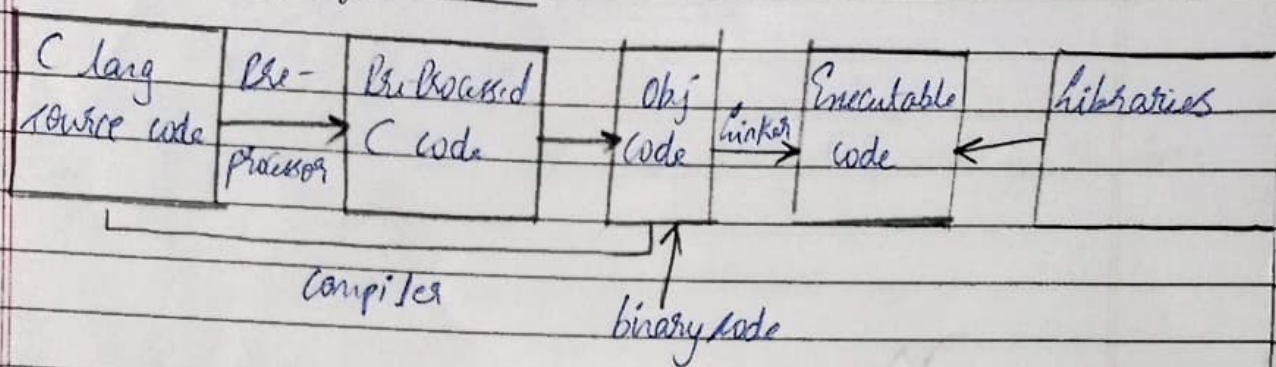 C lang
source code
Pre-
processor
PreProcessed
C code
Obj
code
Linker
Executable
code
Libraries
Compiler
binary code